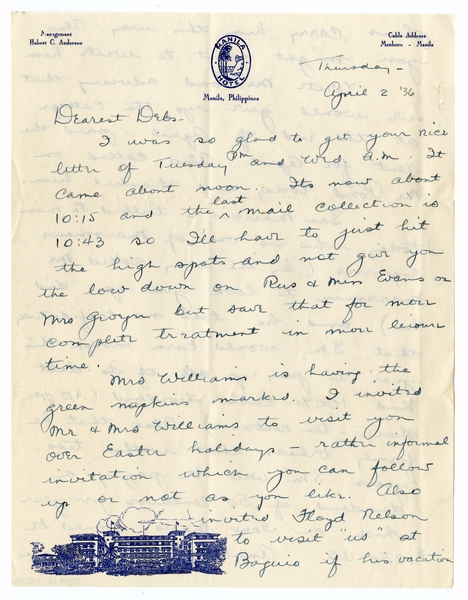 Management
Hubert C. Anderson
MANILA
HOTEL
Manila, Philippines
Cable Address
Manhoco - Manila
Thursday -
April 2 '36
Dearest Debs -
I was so glad to get your nice
letter of Tuesday pm and Wed. a.m. It
came about noon. Its now about
10:15 and the last mail collection is
10:43 so I'll have to just hit
the high spots and not give you
the low down on Rus & Miss Evans or
Mrs but save that for more
complete treatment in more leisure
time.
Mrs Williams is having the
green napkins marked. I invited
Mr & Mrs Williams to visit you
over Easter holidays - rather informal
invitation which you can follow
up or not as you like. Also
invited Floyd Nelson
to visit "us" at
Baguio if his vacation